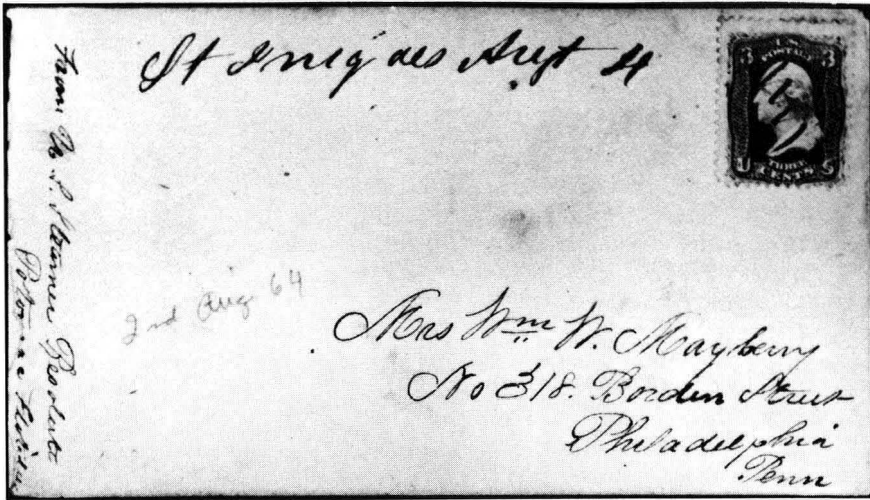 St Inigoes Augt 4
U.S. POSTAGE
3 3
U THREE CENTS S
From U. S. Steamer Resolute
Potomac Flotilla
2nd Aug 64
Mrs Wm W. Mayberry
No 318. Borden Street
Philadelphia
Penn